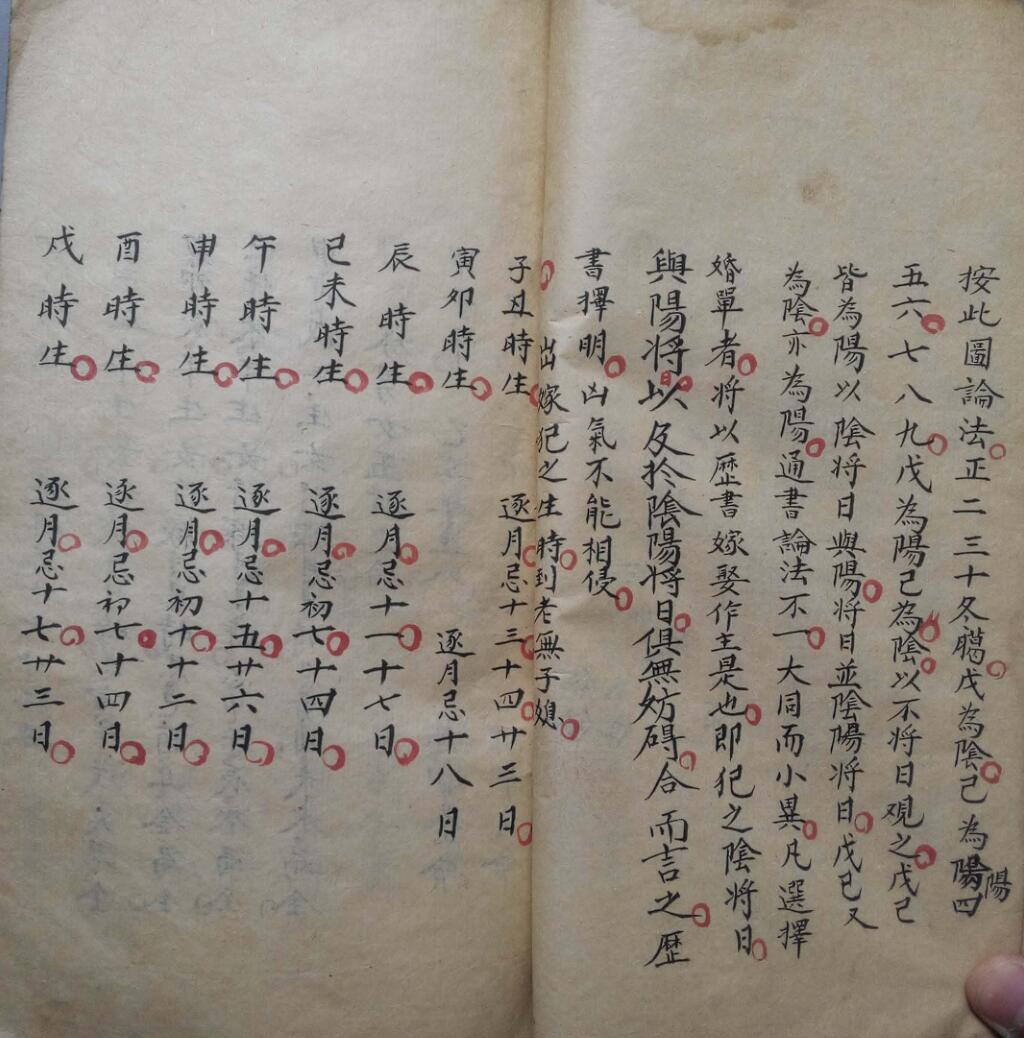 按此圖論法正二三十冬臈戊為陰己為陽四
陽
五六七八九戊為陽己為陰以不將日观之戊己
皆為陽以陰將日與陽將日並陰陽將日戊己又
為陰亦為陽通書論法不一大同而小異凡選擇
婚單者將以歷書嫁娶作主是也即犯之陰將日
與陽將以及扵陰陽將日俱無妨碍合而言之歷
書擇明凶氣不能相侵
出嫁犯之生時到老無子媳
子丑時生逐月忌十三十四廿三日
寅卯時生逐月忌十八日
辰時生逐月忌十一十七日
已未時生逐月忌初七十四日
午時生逐月忌十五廿六日
申時生逐月忌初十十二日
酉時生逐月忌初七十四日
戌時生逐月忌十七廿三日